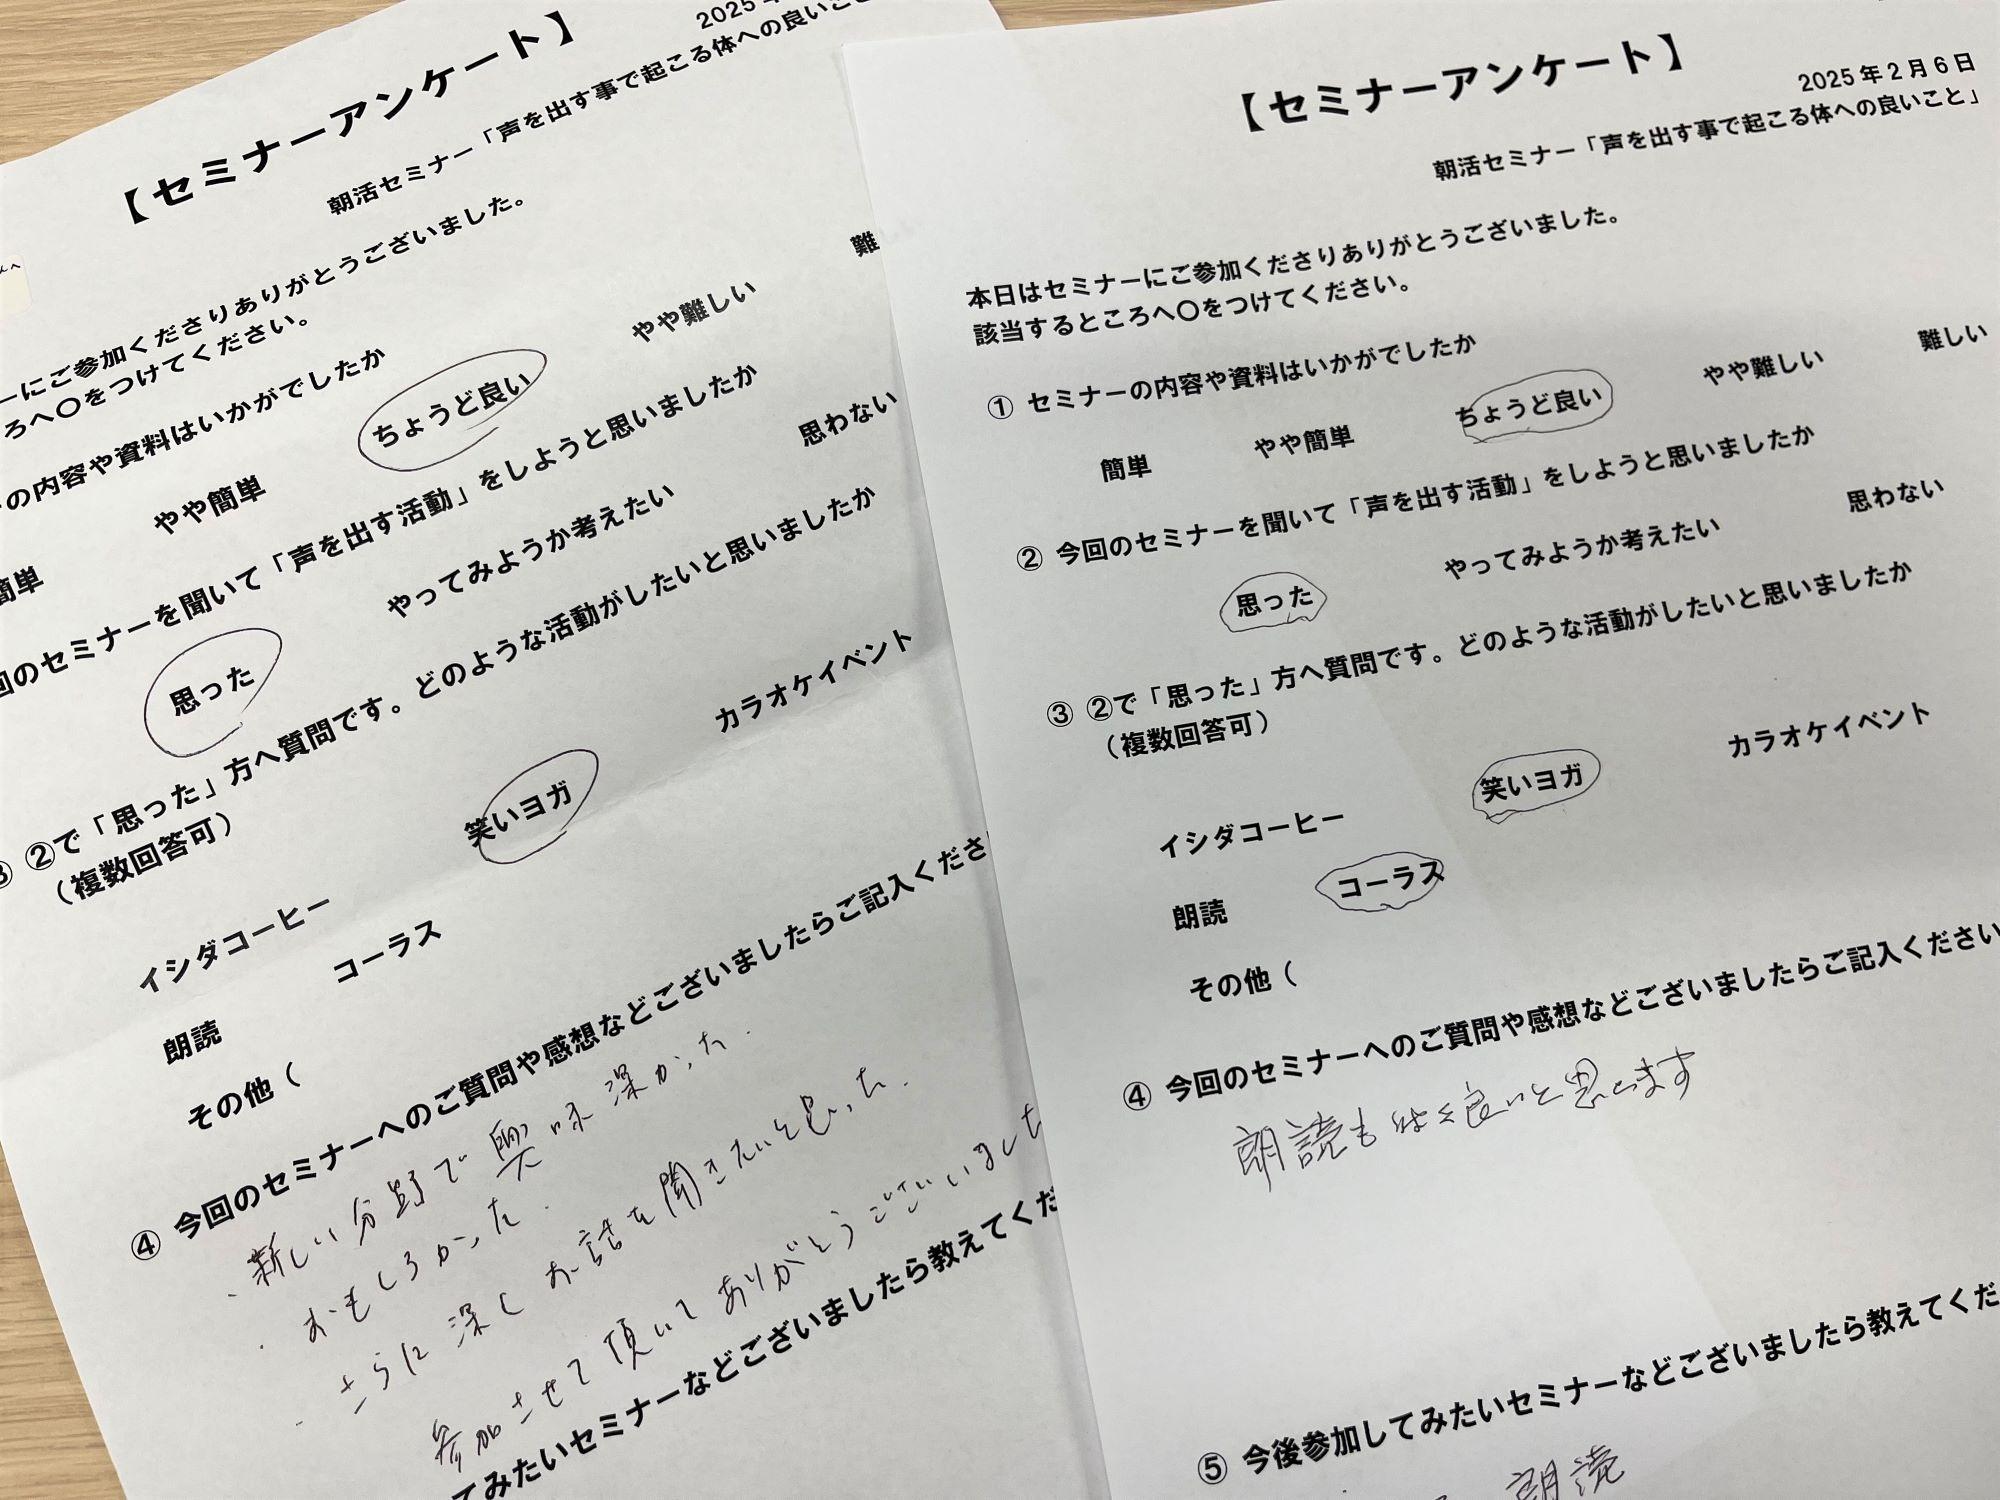 【セミナーアンケート】
2025年
朝活セミナー「声を出す事で起こる体への良いこと
ーにご参加くださりありがとうございました。
ろへ〇をつけてください。
の内容や資料はいかがでしたか
簡単 やや簡単 ちょうど良い やや難しい 難
回のセミナーを聞いて「声を出す活動」をしようと思いましたか
思った やってみようか考えたい 思わない
③ ②で「思った」方へ質問です。どのような活動がしたいと思いましたか
（複数回答可）
イシダコーヒー 笑いヨガ カラオケイベント
朗読 コーラス
その他（
④ 今回のセミナーへのご質問や感想などございましたらご記入くださ
・新しい分野で興味深かった.
・おもしろかった.
・さらに深くお話を聞きたいと思った.
参加させて頂いてありがとうございました
てみたいセミナーなどございましたら教えてくだ
【セミナーアンケート】
2025年2月6日
朝活セミナー「声を出す事で起こる体への良いこと」
本日はセミナーにご参加くださりありがとうございました。
該当するところへ〇をつけてください。
① セミナーの内容や資料はいかがでしたか
簡単 やや簡単 ちょうど良い やや難しい 難しい
② 今回のセミナーを聞いて「声を出す活動」をしようと思いましたか
思った やってみようか考えたい 思わない
③ ②で「思った」方へ質問です。どのような活動がしたいと思いましたか
（複数回答可）
イシダコーヒー 笑いヨガ カラオケイベント
朗読 コーラス
その他（
④ 今回のセミナーへのご質問や感想などございましたらご記入ください
朗読も良いと思います
⑤ 今後参加してみたいセミナーなどございましたら教えてくだ
朗読